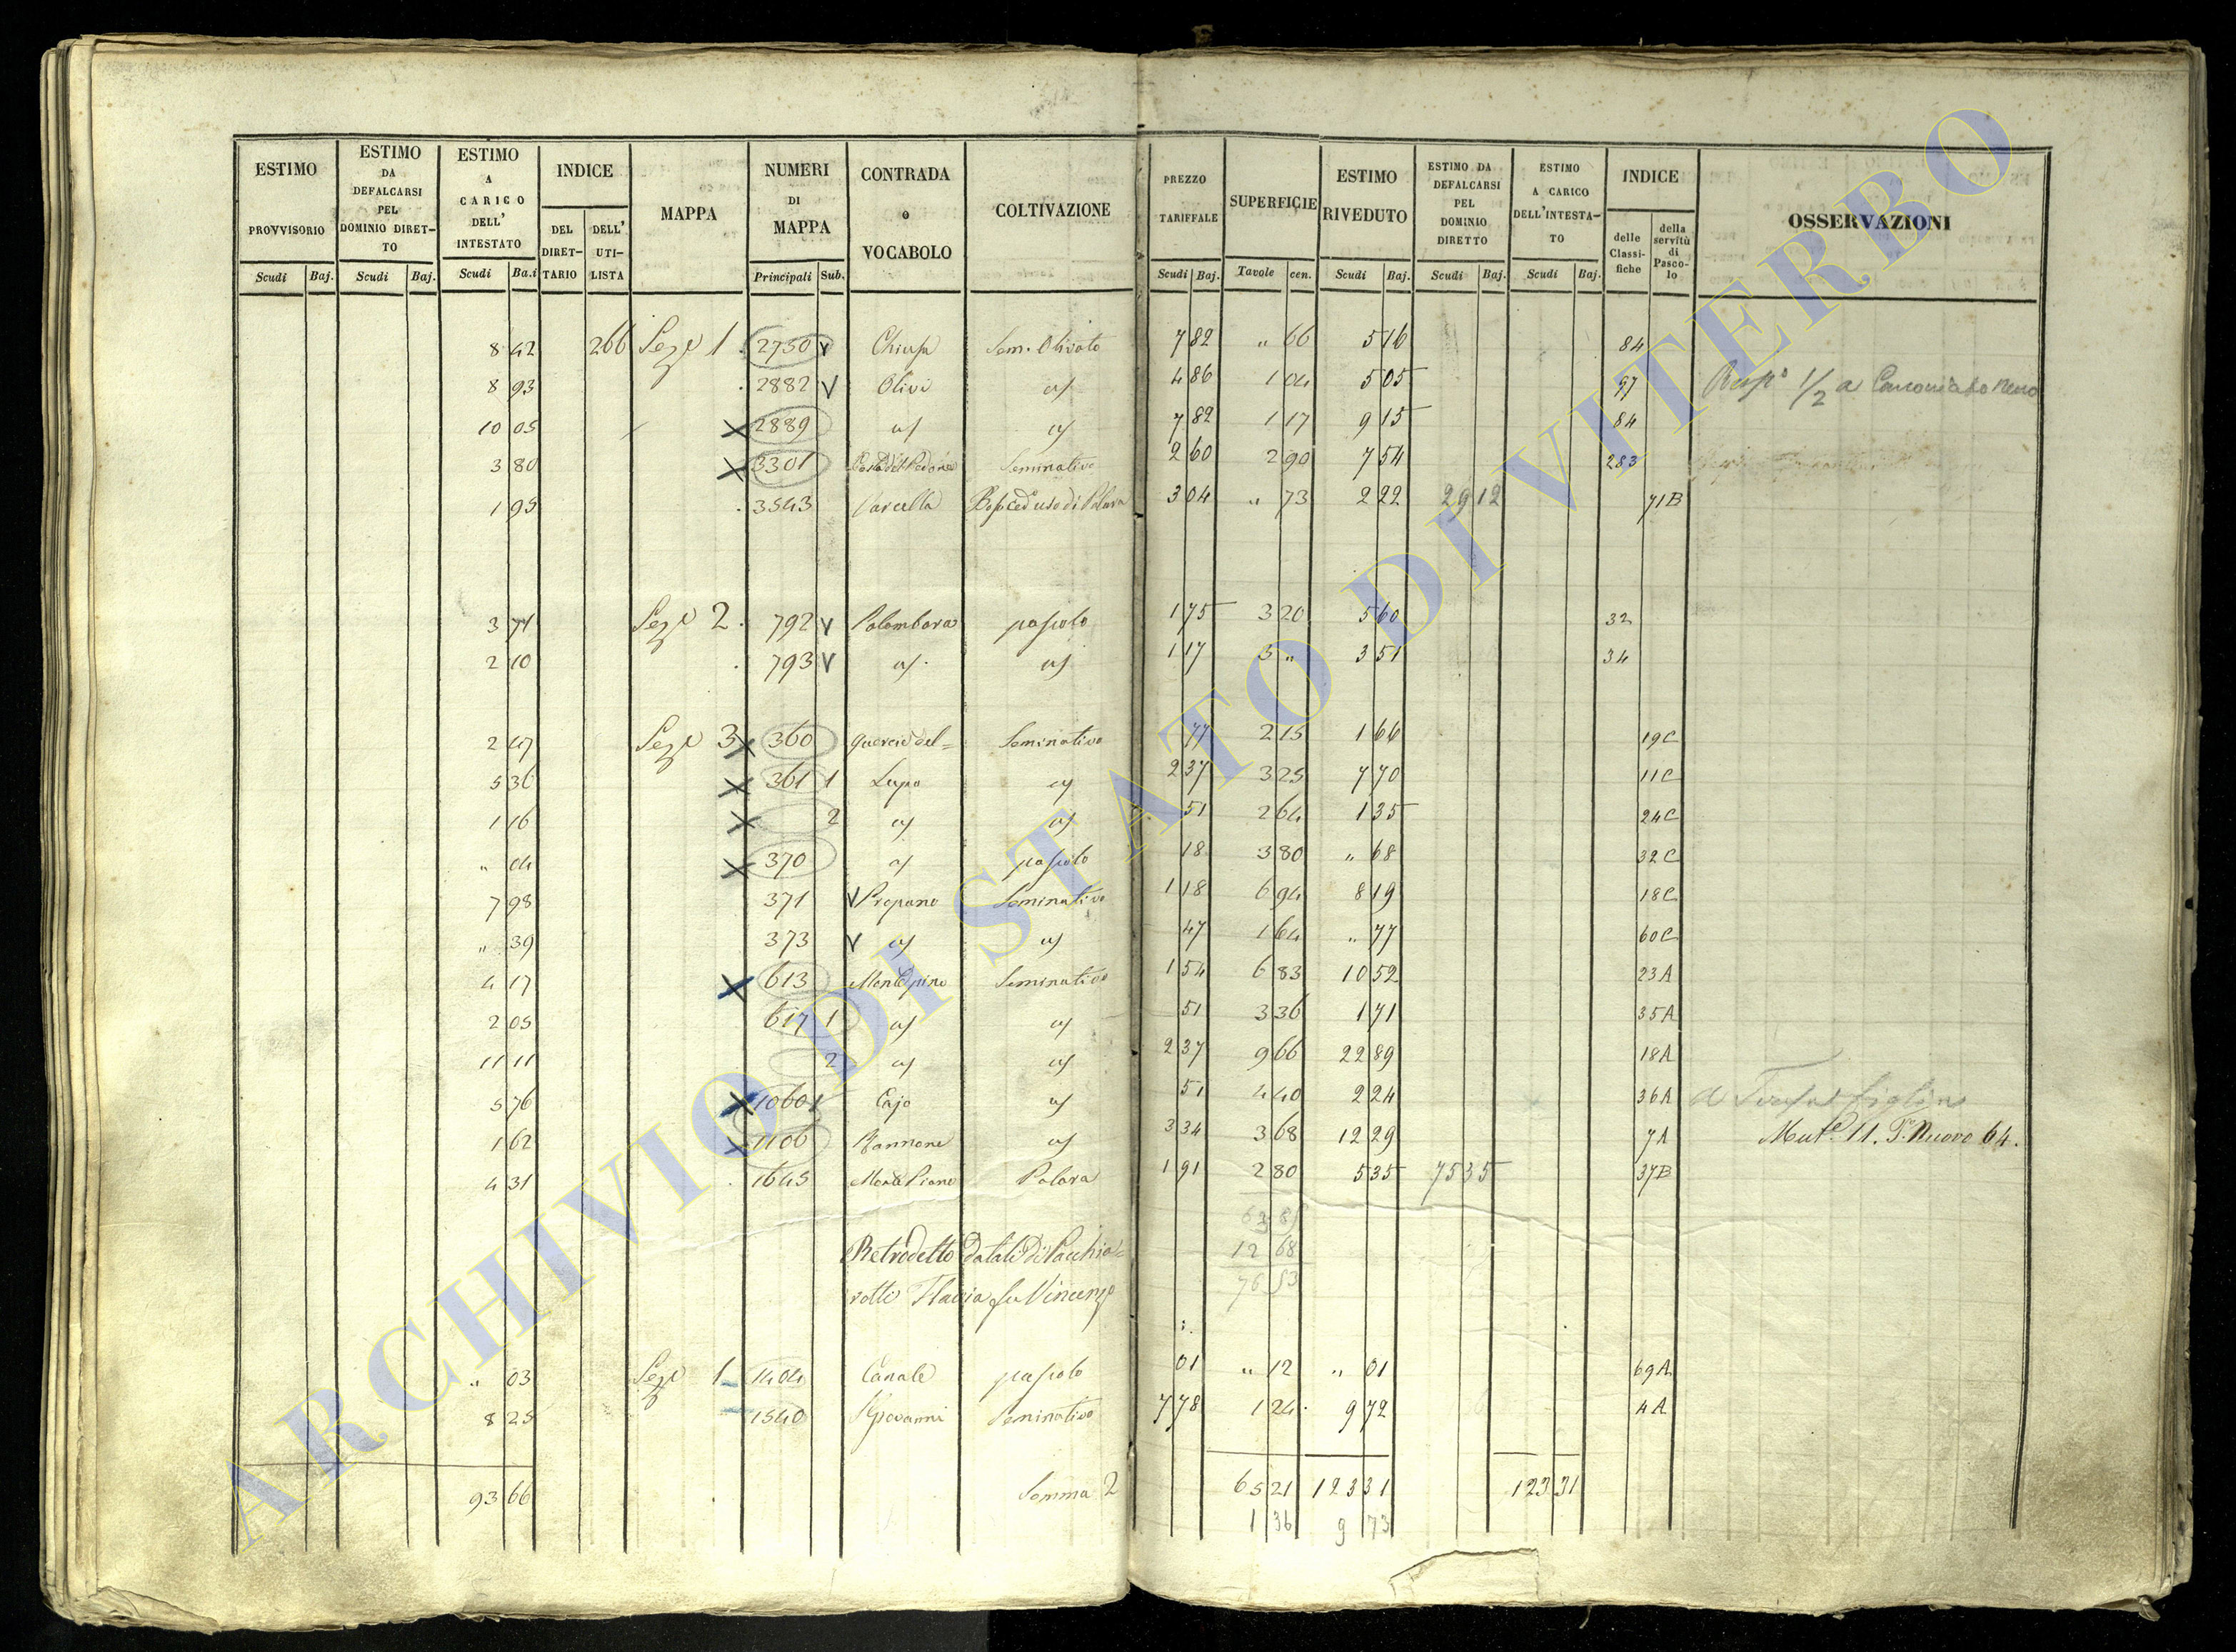 ESTIMO PROVVISORIO Scudi Baj.
ESTIMO DA DEFALCARSI PEL DOMINIO DIRETTO Scudi Baj.
ESTIMO A CARICO DELL' INTESTATO Scudi Ba.i
INDICE DEL DIRETTARIO DELL' UTILISTA
MAPPA
NUMERI DI MAPPA Principali Sub.
CONTRADA o VOCABOLO
COLTIVAZIONE
PREZZO TARIFFALE Scudi Baj.
SUPERFICIE Tavole cen.
ESTIMO RIVEDUTO Scudi Baj.
ESTIMO DA DEFALCARSI PEL DOMINIO DIRETTO Scudi Baj.
ESTIMO A CARICO DELL'INTESTATO Scudi Baj.
INDICE delle Classifiche della servitù di Pascolo
OSSERVAZIONI
8 42 266 Seze 1 2750 v Chiusa Sem. Olivato 7 82 " 66 5 16 84
8 93 2882 v Olivi 4 86 1 04 5 05 97 1/2 a
10 05 x 2889 7 82 1 17 9 15 84
3 80 x 3301 Seminativo 2 60 2 90 7 54 283
1 95 3543 Varcella 3 04 " 73 2 22 29 12 71B
3 71 Seze 2 792 v Palombara pascolo 1 75 3 20 5 60 32
2 10 793 v 1 17 3 " 3 51 34
2 47 Seze 3 x 360 Quercia del= Seminativo 77 2 15 1 66 19C
5 36 x 361 1 Lupo 2 37 3 25 7 70 11C
1 16 x 2 51 2 64 1 35 24C
" 04 x 370 pascolo 18 3 80 " 68 32C
7 98 371 v Propano Seminativo 1 18 6 94 8 19 18C
" 39 373 v 47 1 64 " 77 60C
4 17 x 613 Monte pino Seminativo 1 54 6 83 10 52 23A
2 05 617 1 51 3 36 1 71 35A
11 11 2 2 37 9 66 22 89 18A
5 76 x 1060 Cajo 51 4 40 2 24 36A
1 62 x 1106 Bannone 3 34 3 68 12 29 7A Mut.e 11. T.o Nuovo 64.
4 31 1645 Monte Piano Palara 1 91 2 80 5 35 75 35 37B
63 85
Retrodetto
12 68
76 53
rotti Flavia fu Vincenzo
" 03 Seze 1 1404 Canale pascolo 01 " 12 " 01 69A
8 25 1540 S Giovanni Seminativo 7 78 1 24 9 72 4A
93 66 Somma 2 65 21 123 31 123 31
1 36 9 73
ARCHIVIO DI STATO DI VITERBO